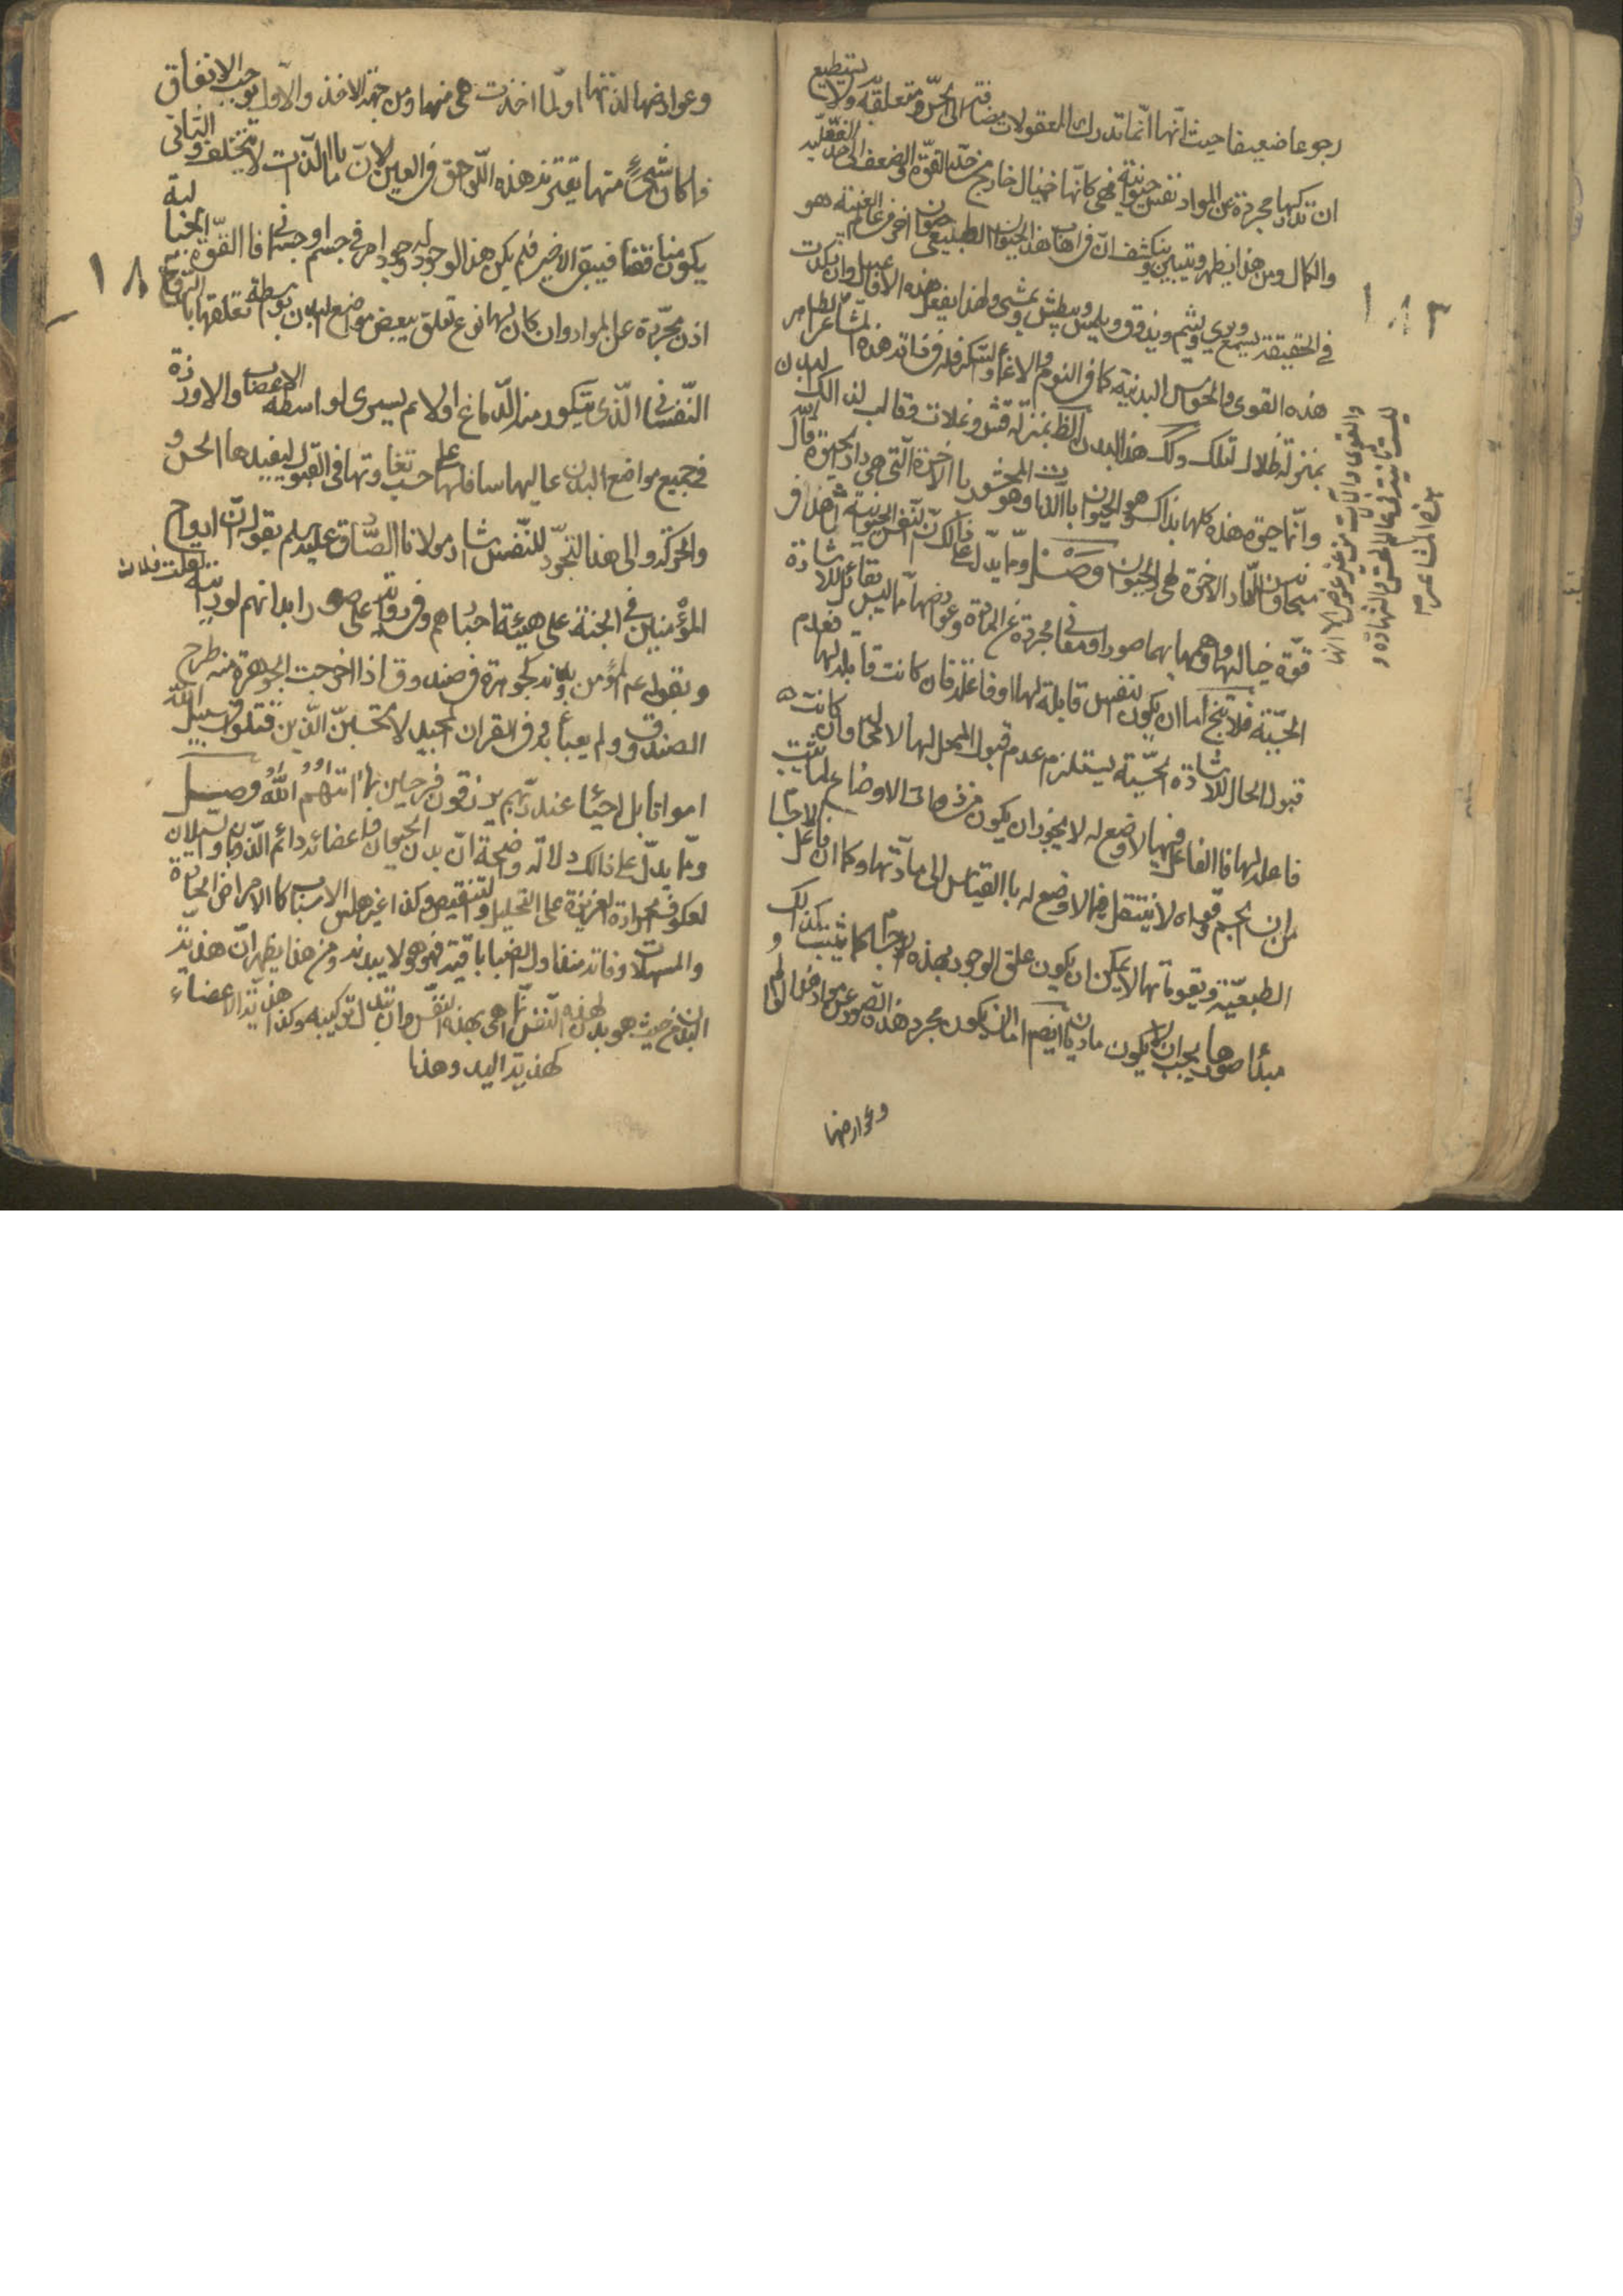 رجوعا ضعيفا حيث انها انما تدرك المعقولات مضافة الى الحس ومتعلقة به ولا يستطيع
ان تدركها مجردة عن المواد نفس حيوانية فهي كانها خيال خارج من حد القوة والضعف الى حد
والكمال ومن هذا يظهر ويتبين وينكشف ان في اهاب هذا الحيوان الطبيعي حيوان اخر في عالم الغيب هو
في الحقيقة يسمع ويرى ويشم ويذوق ويلمس ويبطش ويمشي ولهذا يفعل هذه الافاعيل وان ركدت
هذه القوى والحواس البدنية كما في النوم والاغماء والسكر فله في ذاته هذه المشاعر
بمنزلة ظلال لتلك وكك هذا البدن الظ بمنزلة قشر وغلاف وقالب لذالك البدن
وانما حيوة هذه كلها بذاك وهو الحيوان بالذات وهو المحشور با الاخرة التي هي دار الحيوة قال الله
سبحانه وان الدار الاخرة لهي الحيوان وصل ومما يدل على ذالك ان لنفس الحيوانية
قوة خيالها ووهمها بهما صورا ومعاني مجردة عن المادة وعوارضها مما ليس يقابل للاشارة
الحسية فلا تخ اما ان يكون لنفس قابلة لها او فاعلة فان كانت قابلة لها فعدم
قبول الحال للاشارة الحسية يستلزم عدم قبول المحل لها لا محالة وان كانت
فاعلة لها فا الفاعل فيما لا وضع له لا يجوز ان يكون من ذوات الاوضاع لما ثبت
من ان الجسم وقواه لا ينفعل فيما لا وضع له با القياس الى مادتها وكما ان فاعل الاجسام
الطبعية ومقوماتها لا يمكن ان يكون علق الوجود بهذه الاجسام كما ثبت كذالك
مبدأ صورها يجب ان لا يكون ماديا ايضم اما ان يكون مجرد هذه الصور عن موادها
وعوارضها
والقوى والآلات من غير عوض لانها
ليست ثابتة في عالم الحس والشهادة و
هذه المشاعر م
١٨٣
وعوارضها لذاتها او لما اخذت هي منها ومن جهة الاخذ والاول يوجب الاتفاق
فا كان شيئ منها يعتريه هذه اللواحق في العين لان ما با الذات لا يتخلف والثاني
يكون مناقضا فيبقى الاخير فلم يكن هذا الوجود له وجود امر في جسم او جسماني فا القوة الخيالية
اذن مجردة عن المواد وان كان لها نوع تعلق ببعض مواضع البدن بوسطة تعلقها با الروح
النفساني الذي يتكون من الدماغ اولا ثم يسرى لواسطه الاعصاب والاوردة
في جميع مواضع البدن عاليها وسافلها على حسب تفاوتها في القبول ليفيدها الحس و
والحركة والى هذا التجرد للنفس اشار مولانا الصادق عليه السلم بقوله ان ارواح
المؤمنين في الجنة على هيئة اجسادهم وفي رواية على صور ابدانهم لو رايته لقلت فلان
وبقوله عم المؤمن وبدنه كجوهرة في صندوق اذا اخرجت الجوهرة منه طرح
الصندوق ولم يعبأ به وفي القران المجيد لا تحسبن الذين قتلوا في سبيل الله
امواتا بل احيٓا عند ربهم يرزقون فرحين بما اتٓهم الله وصل
ومما يدل على ذالك دلالة واضحة ان بدن الحيوان واعضائه دائم الذوبان والسيلان
لعكوف الحرارة الغريزية على التحليل والتنقيص وكذا غيرها من الاسباب كا الامراض الحارة
والمسهلات وذاته منذ اول الصبا باقية فهو هو لا ببدنه ومن هذا يظهر ان هذية
البدن من حيث هو بدن لهذه النفس انما هي بهذه النفس وان تبدل تركيبه وكذا هذية الاعضاء
كهذية اليد وهذا
١٨